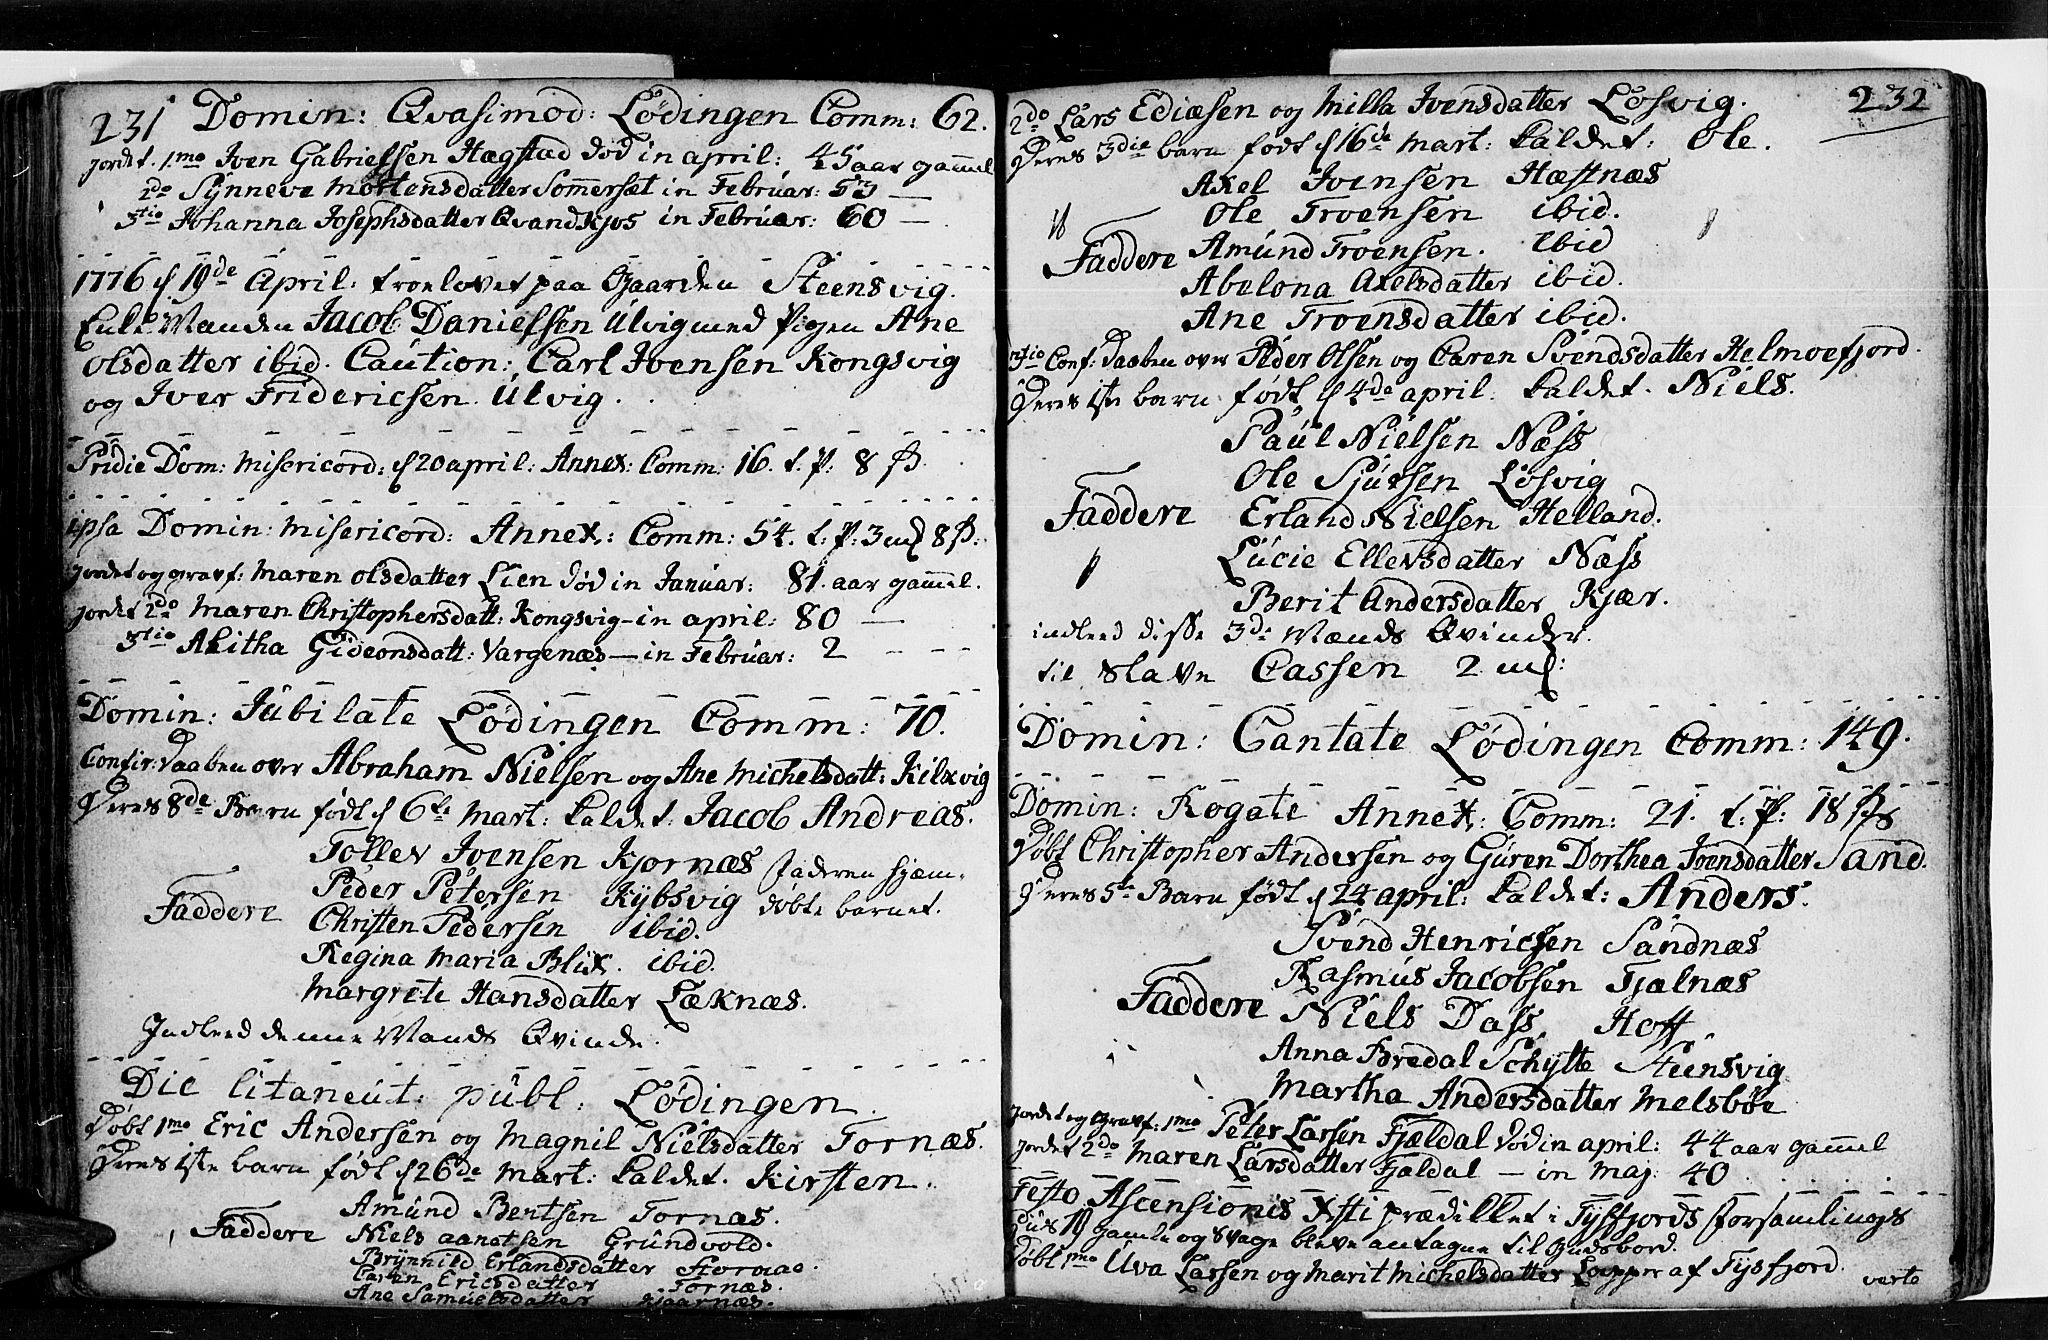 231 Domin: Qvasimod: Lødingen Comm: 62.
jordet. 1mo Iven Gabrielsen Hægstad død in april: 45 aar gammel
2do Synneve Mortensdatter Sommerset in Februar: 53 —
3tio Johanna Josephsdatter Qvandkjos in Februar: 60 —
1776 d 19de April: troelovet paa Gaarden Steensvig.
Enke Manden Jacob Danielsen Ulvig med Pigen Ane
Olsdatter ibid. Caution: Carl Ivensen Kongsvig
og Iver Fridericsen Ulvig.
Pridie Dom: Misericord: d 20 april: Annex: Comm: 16. t. P: 8 ß.
ipsa Domin: Misericord: Annex: Comm: 54. t: P: 3 mk 8 ß:
jordet og gravf: Maren Olsdatter Lien død in Januar: 81. aar gammel.
jordet 2do Maren Christophersdatt: Kongsvig — in april: 80 —
3tio Akitha Gideonsdatt: Vargenæs — in Februar: 2 - - -
Domin: Jubilate Lødingen Comm: 70.
Confir: Daaben over Abraham Nielsen og Ane Michelsdatt: Kilvig
Deres 8de Barn født d 6te Mart: kaldet: Jacob Andreas.
Tollev Ivensen Kjornæs Faderen hjem-
Peder Petersen Kybsvig døbte barnet.
Faddere Christen Pedersen ibid.
Regina Maria Blix. ibid.
Margrete Hansdatter Læknæs.
Indleed denne Mands Qvinde.
Die litaneut: publ: Lødingen.
Døbt 1mo Eric Andersen og Magnil Nielsdatter Tornæs.
Deres 1ste barn født d 26de Mart: kaldet. Kirsten.
Amund Bentsen Tornæs.
Faddere Niels Aanetsen Grundvold.
Brynnild Erlandsdatter Hornæs.
Caren Ericsdatter Tornæs.
Ane Samuelsdatter Kjaarnæs.
232
2do Lars Ediæsen og Milla Ivensdatter Losvig.
Deres 3die barn født d 16de Mart: kaldet: Ole.
Axel Ivensen Hæstnæs
Ole Troensen ibid.
Faddere Amund Troensen. ibid
Abelona Axelsdatter ibid.
Ane Troensdatter ibid.
3tio Conf: Daaben over Peder Olsen og Caren Svendsdatter Helmoefjord.
Deres 1ste barn født d 4de april: kaldet. Niels.
Paul Nielsen Næss
Ole Sjursen Losvig
Faddere Erland Nielsen Helland.
Lucie Ellevsdatter Næss
Berit Andersdatter Kjær.
indleed disse 3de Mænds Qvinder.
til Slave Cassen 2 mk:
Domin: Cantate Lødingen Comm: 149.
Domin: Rogate Annex: Comm: 21. t: P: 18 ß
Døbt Christopher Andersen og Guren Dorthea Ivensdatter Sand.
Deres 5te Barn født d 24 april: kaldet: Anders.
Svend Henricsen Sandnæs
Rasmus Jacobsen Tjælnæs
Faddere Niels Dass. Hoff.
Anna Bredal Schytte Steensvig
Martha Andersdatter Melsbøe
Jordet og Gravf: 1mo Peter Larsen Fjældal død in april: 44 aar gammel
jordet 2do Maren Larsdatter Fjældal — in maj: 40
Festo Ascensionis Xsti prædikket i Tysfjords Forsamlings
Huus 19 gamle og svage bleve antagne til Gudsbord.
Døbt 1mo Uva Larsen og Marit Michelsdatter Lapper af Tysfjord.
verte